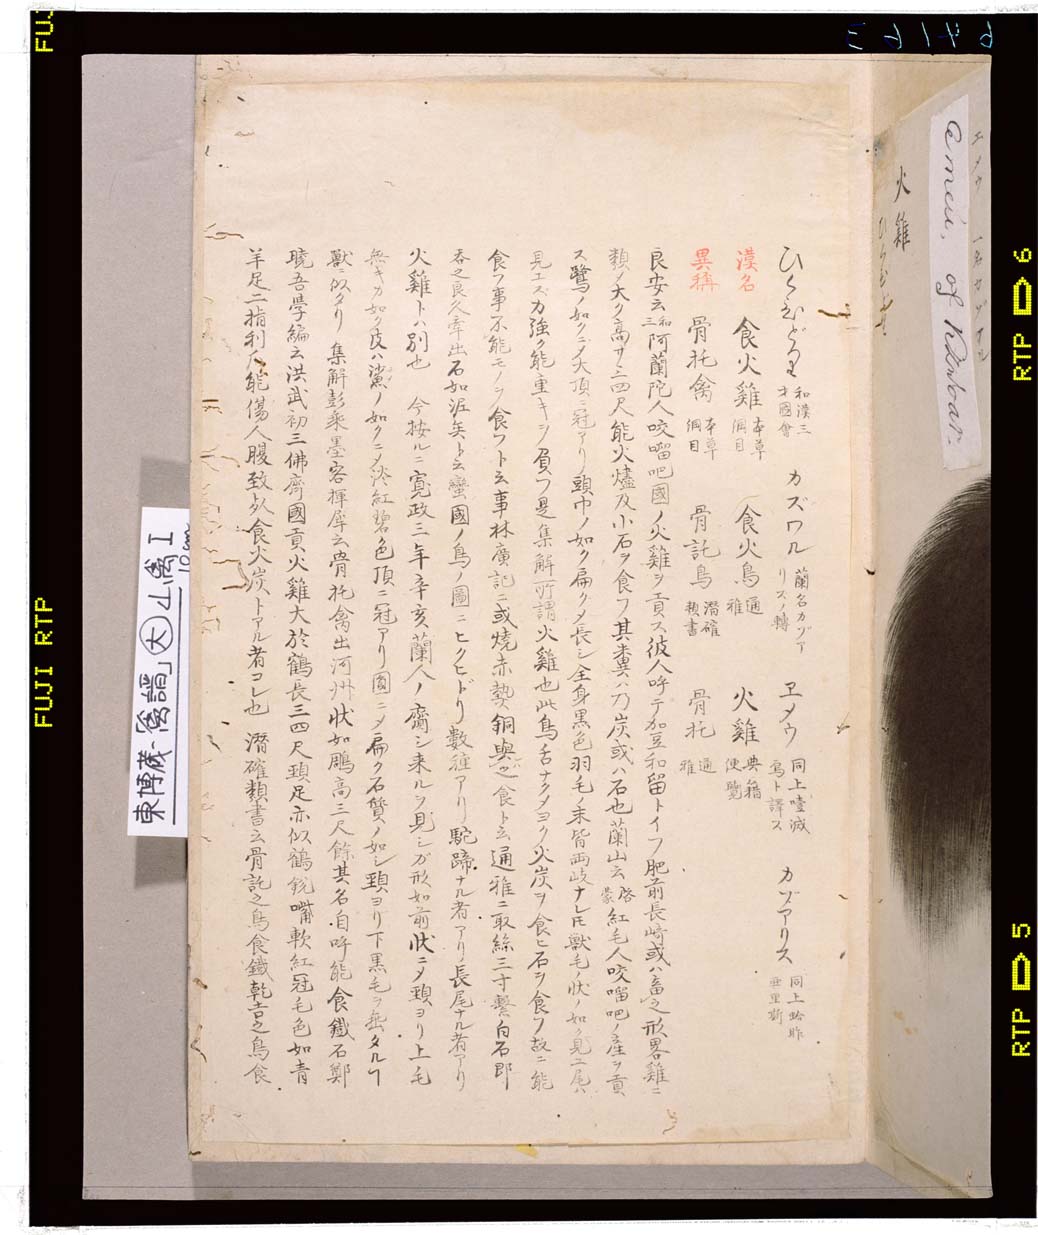 ひくひどり 和漢三才圖會 カズワル 蘭名カヅアリスノ轉 ヱメウ 同上 カヅアリス 同上
漢名 食火雞 本草綱目 食火鳥 通雅 火雞 典籍便覽
異稱 骨托禽 本草綱目 骨託鳥 潛確類書 骨托 通雅
良安云 和三 阿蘭陀人咬𠺕吧國ノ火雞ヲ貢ス彼人呼テ加豆和留トイフ肥前長崎或ハ畜之形畧雞ニ
類ノ大ク高サ三四尺能火燼及小石ヲ食フ其糞ハ乃炭或ハ石也蘭山云 啓蒙 紅毛人咬𠺕吧ノ産ヲ貢
ス鷺ノ如クニ〆大頂ニ冠アリ頭巾ノ如ク扁ク〆長シ全身黒色羽毛ノ末皆両岐ナレ𪜈獸毛ノ状ノ如ク見ユ尾ハ
見エズ力強ク能重キヲ負フ是集解所謂火雞也此鳥舌ナク〆ヨク火炭ヲ食ヒ石ヲ食フ故ニ能
食フ事不能モノヲ食フト云事林廣記ニ或燒赤熱銅與之食ト云通雅ニ取綿三寸繫白石即
吞之良久牽出石如泥矣ト云蠻國ノ鳥ノ圖ニヒクヒドリ數種アリ駝蹄ナル者アリ長尾ナル者アリ
火雞トハ別也 今按ルニ寛政三年辛亥蘭人ノ齎シ来ルヲ見シガ形如前状ニ〆頸ヨリ上毛
無キカ如ク皮ハ鯊ノ如クニ〆淡紅碧色頂ニ冠アリ圓ニ〆扁ク石質ノ如シ頸ヨリ下黒毛ヲ垂タルヿ
獸ニ似タリ 集解彭乘墨客揮犀云骨托禽出河州状如鵰高三尺餘其名自呼能食鐵石鄭
曉吾學編云洪武初三佛齊國貢火雞大於鶴長三四尺頸足亦似鶴銳嘴軟紅冠毛色如青
羊足二指利爪能傷人腹致死食火炭トアル者コレ也 潛確類書云骨託之鳥食鐵乾吉之鳥食
火雞
ひくひどり
エメウ 一名カヅアル
東博蔵「禽譜」大 小禽 I
FUJI RTP
RTP 6
RTP 5
64163